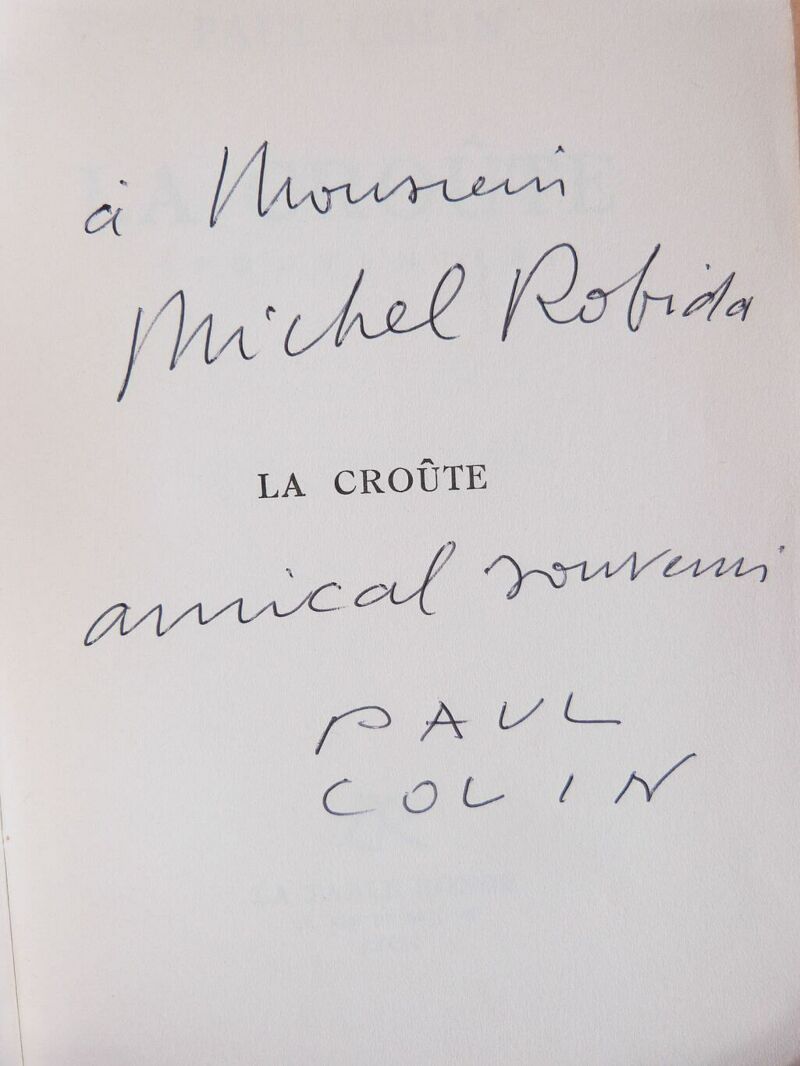 à Monsieur
Michel Robida
LA CROÛTE
amical souvenir
PAUL
COLIN